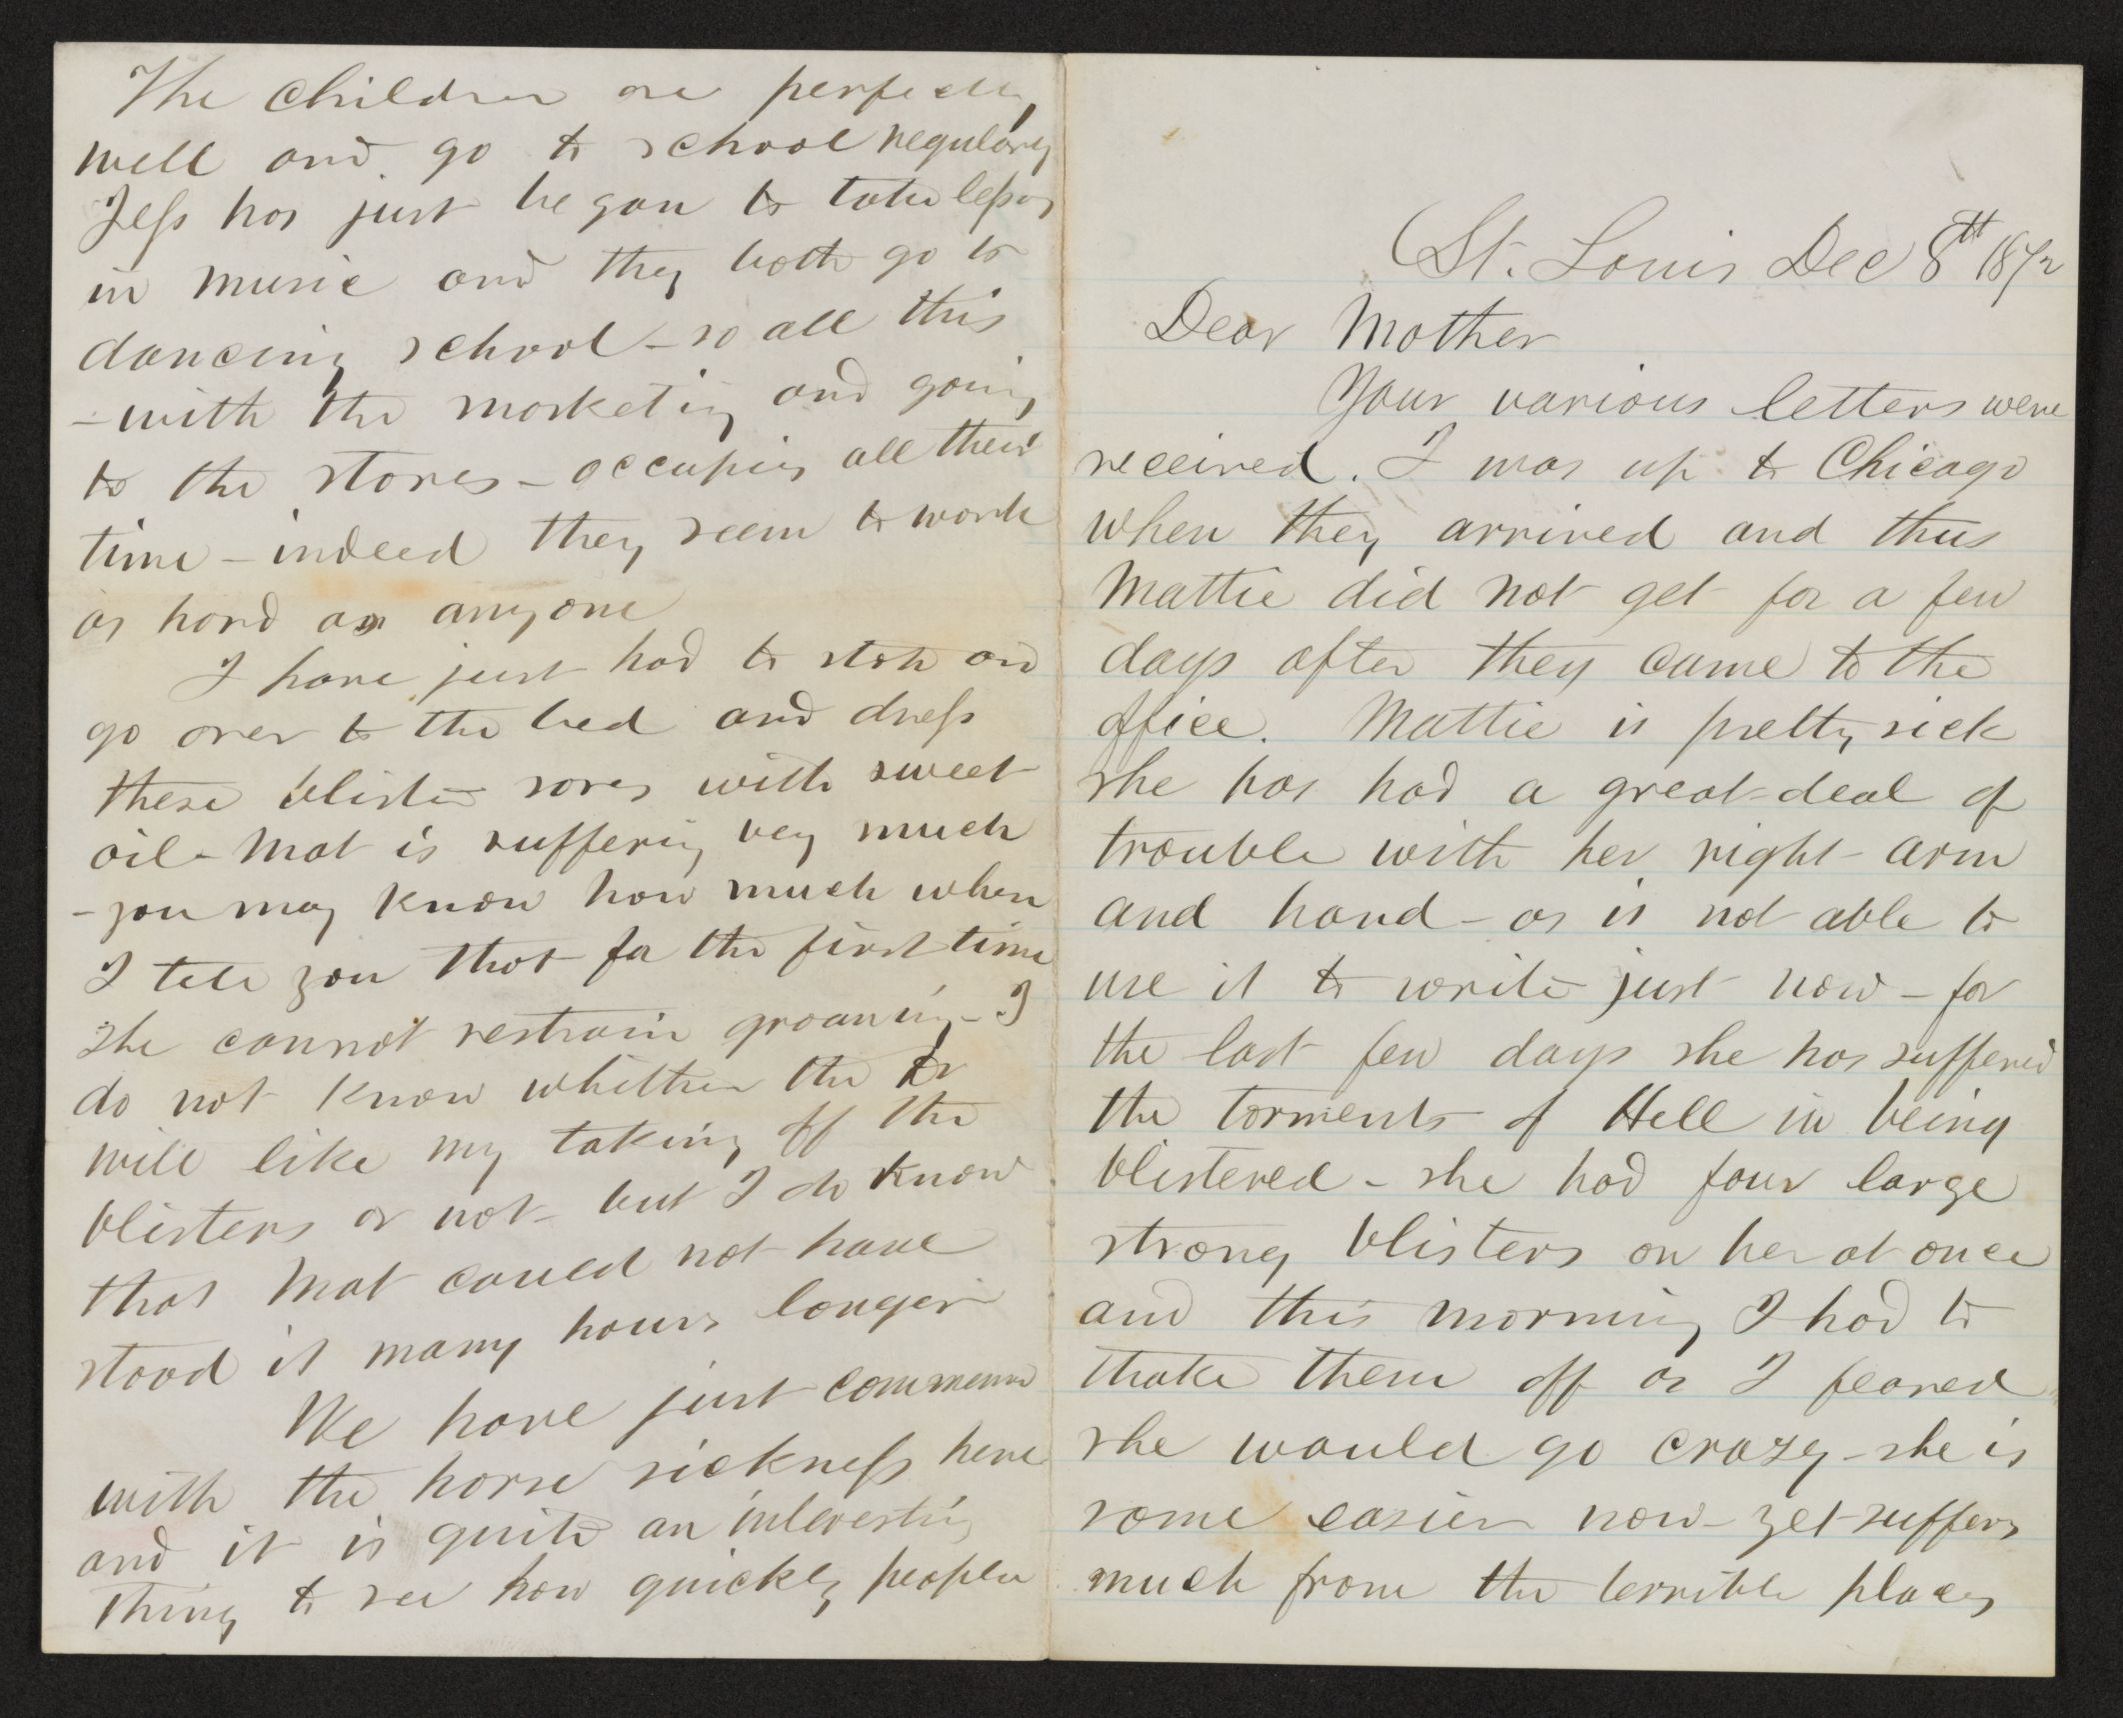 St. Louis Dec 8th 1872
Dear Mother
Your various letters were
received. I was up to Chicago
when they arrived and thus
Mattie did not get for a few
days after they came to the
office. Mattie is pretty sick
she has had a great deal of
trouble with her right arm
and hand – as is not able to
use it to write just now – for
the last few days she has suffered
the torments of Hell in being
blistered – she had four large
strong blisters on her at once
and this morning I had to
thake them off as I feared
she would go crazy – she is
some easier now – yet suffers
much from the terrible places
The children are perfectly
well and go to school regularly
Jess has just began to take lessons
in music and they both go to
dancing school – so all this
– with the marketing and going
to the stores – occupies all their
time – indeed they seem to work
as hard as anyone
I have just had to stop and
go over to the bed and dress
these blister sores with sweet
oil – Mat is suffering very much
– you may know how much when
I tell you that for the first time
she cannot restrain groaning – I
do not know whether the Dr
will like my taking off the
blisters or not – but I do know
that Mat could not have
stood it many hours longer
We have just commenced
with the horse sickness here
and it is quite an interesting
thing to see how quickly people